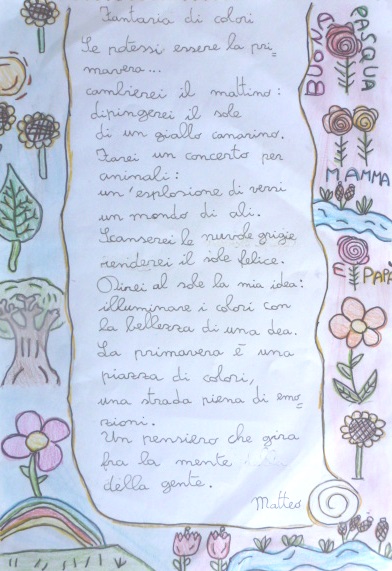 Fantasia di colori
Se potessi essere la pri=
mavera...
cambierei il mattino:
dipingerei il sole
di un giallo canarino.
Farei un concerto per
animali:
un'esplosione di versi
un mondo di ali.
Scanserei le nuvole grigie
renderei il sole felice.
Direi al sole la mia idea:
illuminare i colori con
la bellezza di una dea.
La primavera è una
piazza di colori,
una strada piena di emo=
zioni.
Un pensiero che gira
fra la mente
della gente.
Matteo
BUONA
PASQUA
MAMMA
E PAPÀ